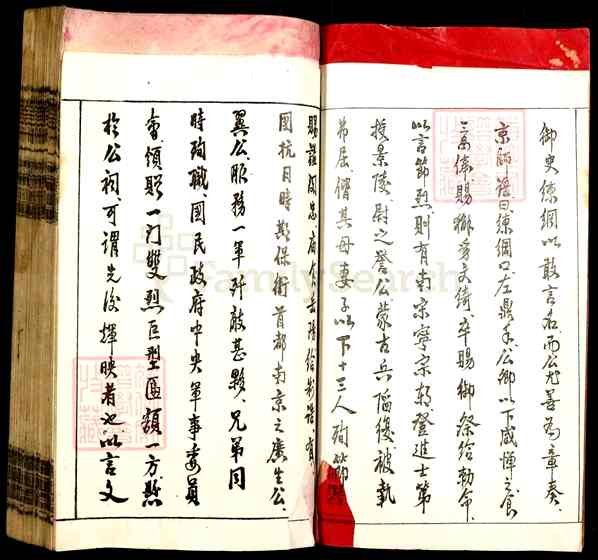 御史練綱以敢言名、而公尤善為章奏、
京師語曰練綱口、左鼎手、公卿以下咸憚之、食
三品俸、賜獬豸文綺、卒賜御祭給勅命、
以言節烈、則有南宋寧宗朝、登進士第
授景陵尉之誉公、蒙古兵陷復、被執
不屈、偕其母妻子以下十三人殉節
賜諡閔忠、
國抗日時期保衛首都南京之廣生公、
翼公、服務一軍歼敵甚夥、兄弟同
時殉職、國民政府中央軍事委員
會、頒贈一門雙烈巨型區額一方懸
於公祠、可謂先後輝映者也、以言文
FamilySearch